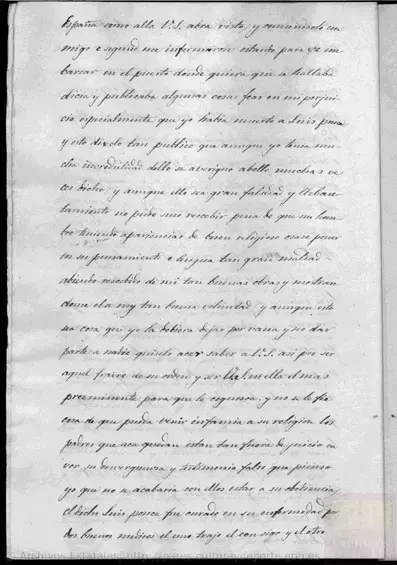 España como alla V.S. abra visto, y comunicolo con
migo e segund me informaron estando para se em
barcar en el puerto donde quiera que se hallaba
dicia y publicaba algunas cosas feas en mi perjui-
cio especialmente que yo habia muerto a Luis ponce
y esto dixolo tan publico que aunque yo tenia mu-
cha incredulidad dello se averiguo abello muchas ve
ces dicho y aunque ello sea gran falsedad y lleban-
tamiento no pude sino recebir pena de que un hom-
bre teniendo apariencias de buen religioso osase poner
en su pensamiento e lengua tan gran maldad
abiendo recebido de mi tan buenas obras y mostran
dome el a my tan buena voluntad y aunque esto
sea cosa que yo la debiera dejar por vana y no dar
parte a nadie quiselo acer saber a V.S. asi por ser
aquel fraire de su orden y ser el mas
preeminente para que le conosca y no se le fie
cosa de que pueda venir infamia a su religion los
padres que aca quedan estan tan fuera de juicio en
ver su desverguenza y testimonio falso que pienso
yo que no se acabaria con ellos estar a su obediencia
el dicho Luis ponce fue curado en su enfermedad por
dos buenos medicos el uno trajo el consigo y el otro
Archivos Estatales, http://pares.culturaydeporte.gob.es